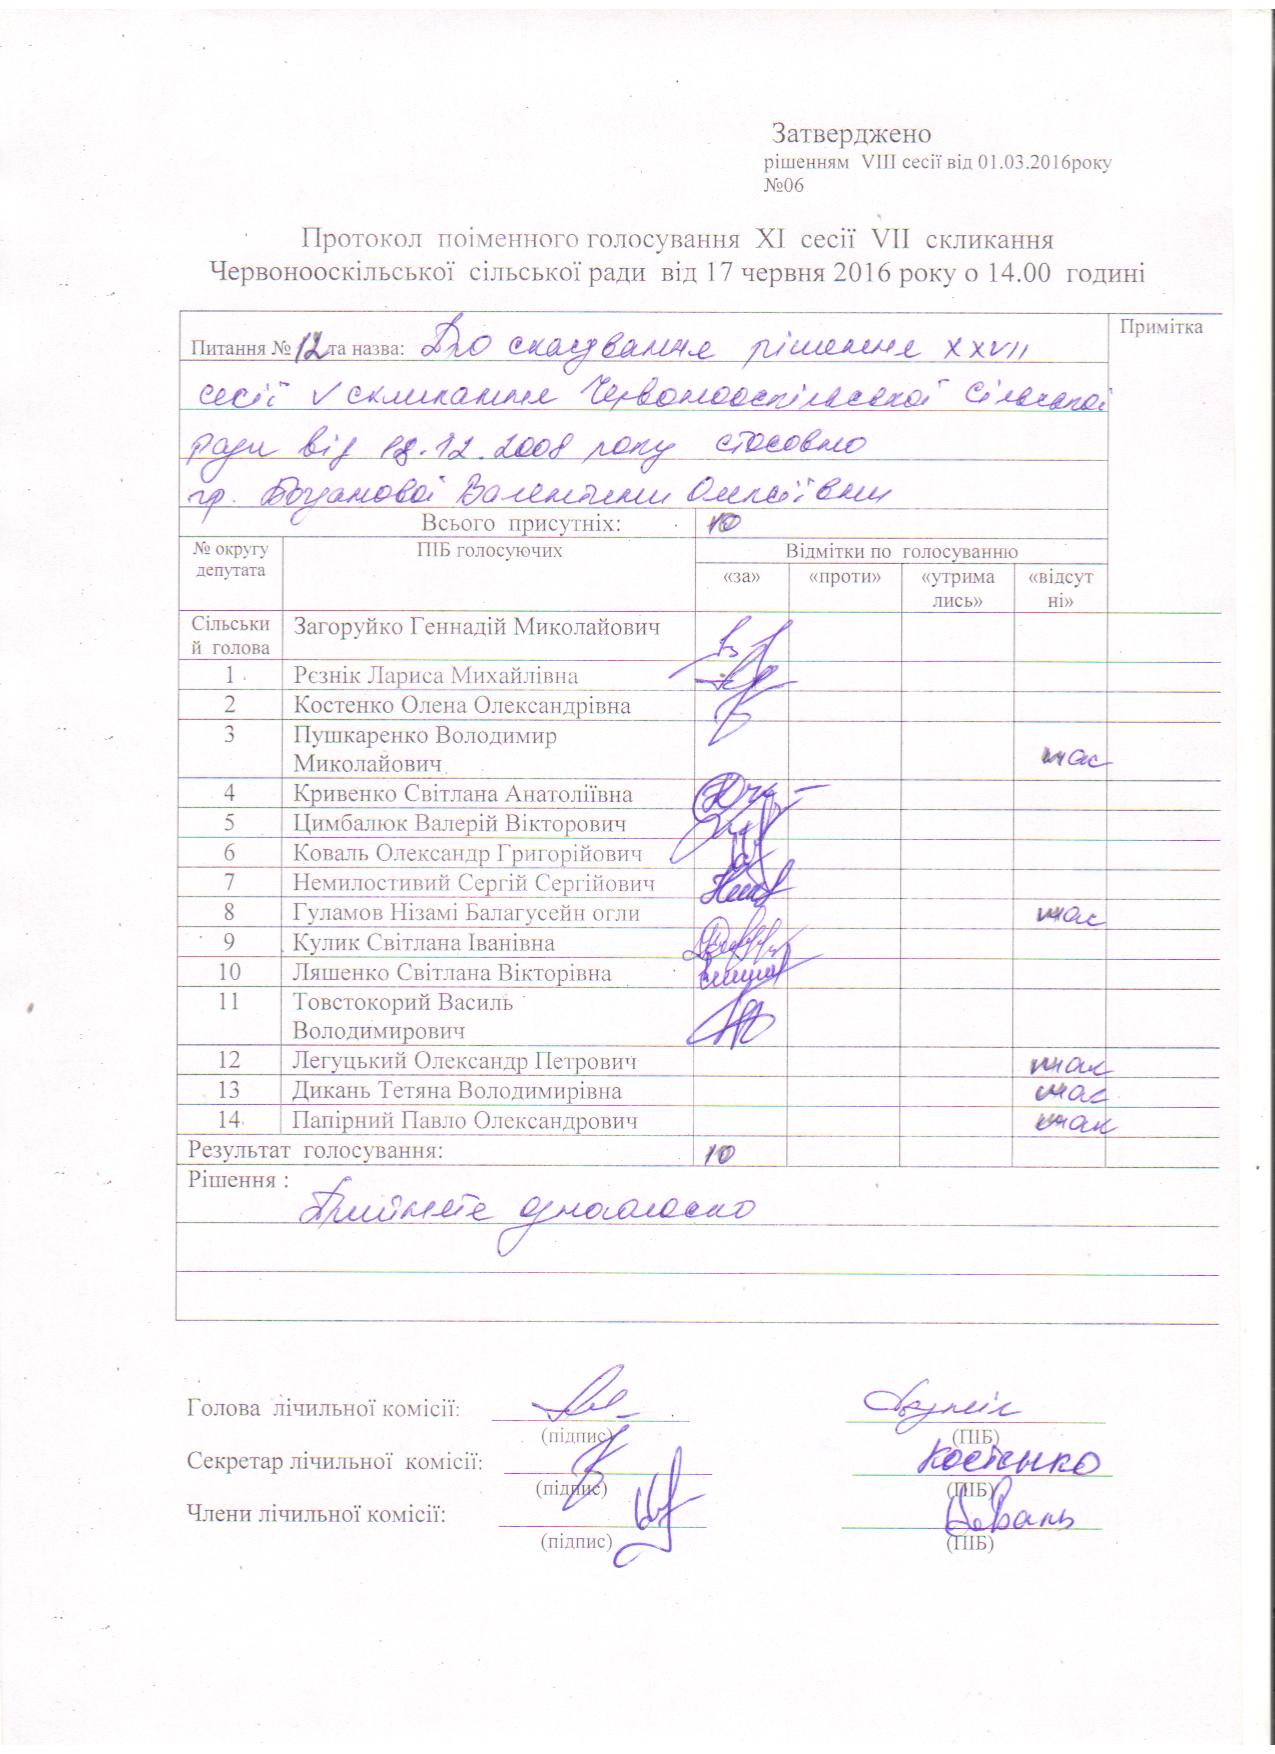 Затверджено
рішенням VIII сесії від 01.03.2016року
№06
Протокол поіменного голосування XI сесії VII скликання
Червонооскільської сільської ради від 17 червня 2016 року о 14.00 годині
Питання № 12 та назва: Про скасування рішення XXVII
Примітка
сесії V скликання Червонооскільської сільської
ради від 18.12.2008 року стосовно
гр. Валентини Олексіївни
Всього присутніх: 10
№ округу депутата
ПІБ голосуючих
Відмітки по голосуванню
«за» «проти» «утрима лись» «відсут ні»
Сільськи й голова Загоруйко Геннадій Миколайович
1 Рєзнік Лариса Михайлівна
2 Костенко Олена Олександрівна
3 Пушкаренко Володимир
Миколайович
4 Кривенко Світлана Анатоліївна
5 Цимбалюк Валерій Вікторович
6 Коваль Олександр Григорійович
7 Немилостивий Сергій Сергійович
8 Гуламов Нізамі Балагусейн огли
9 Кулик Світлана Іванівна
10 Ляшенко Світлана Вікторівна
11 Товстокорий Василь
Володимирович
12 Легуцький Олександр Петрович
13 Дикань Тетяна Володимирівна
14 Папірний Павло Олександрович
Результат голосування: 10
Рішення :
Прийнято одноголосно
Голова лічильної комісії:
(підпис) (ПІБ)
Секретар лічильної комісії: Костенко
(підпис) (ПІБ)
Члени лічильної комісії:
(підпис) (ПІБ)